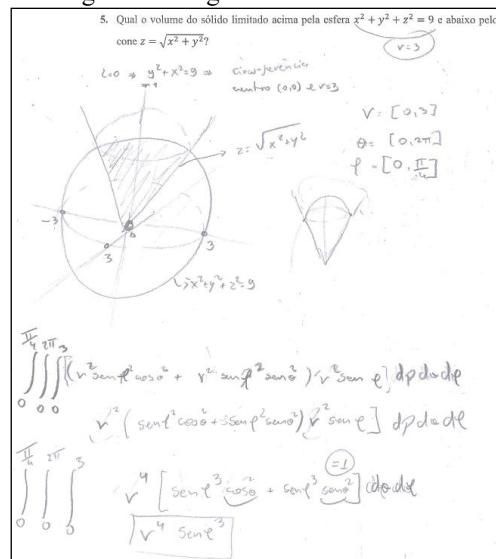 5. Qual o volume do sólido limitado acima pela esfera x² + y² + z² = 9 e abaixo pelo
cone z = √(x² + y²)?
r=3
z=0 ⇒ y²+x²=9 ⇒ circunferência
centro (0,0) e r=3
z=√(x²+y²)
r: [0,3]
θ= [0,2π]
φ=[0,π/4]
-3
3
3
x²+y²+z²=9
∫₀^(π/4) ∫₀^(2π) ∫₀^3 [(r² senφ² cosθ² + r² senφ² senθ²) r² sen φ] dρ dθ dφ
r² (senφ² cosθ² + senφ² senθ²) r² sen φ] dρ dθ dφ
(=1)
∫₀^(π/4) ∫₀^(2π) ∫₀^3 r⁴ [senφ³ cosθ² + senφ³ senθ²] dθ dφ
r⁴ senφ³